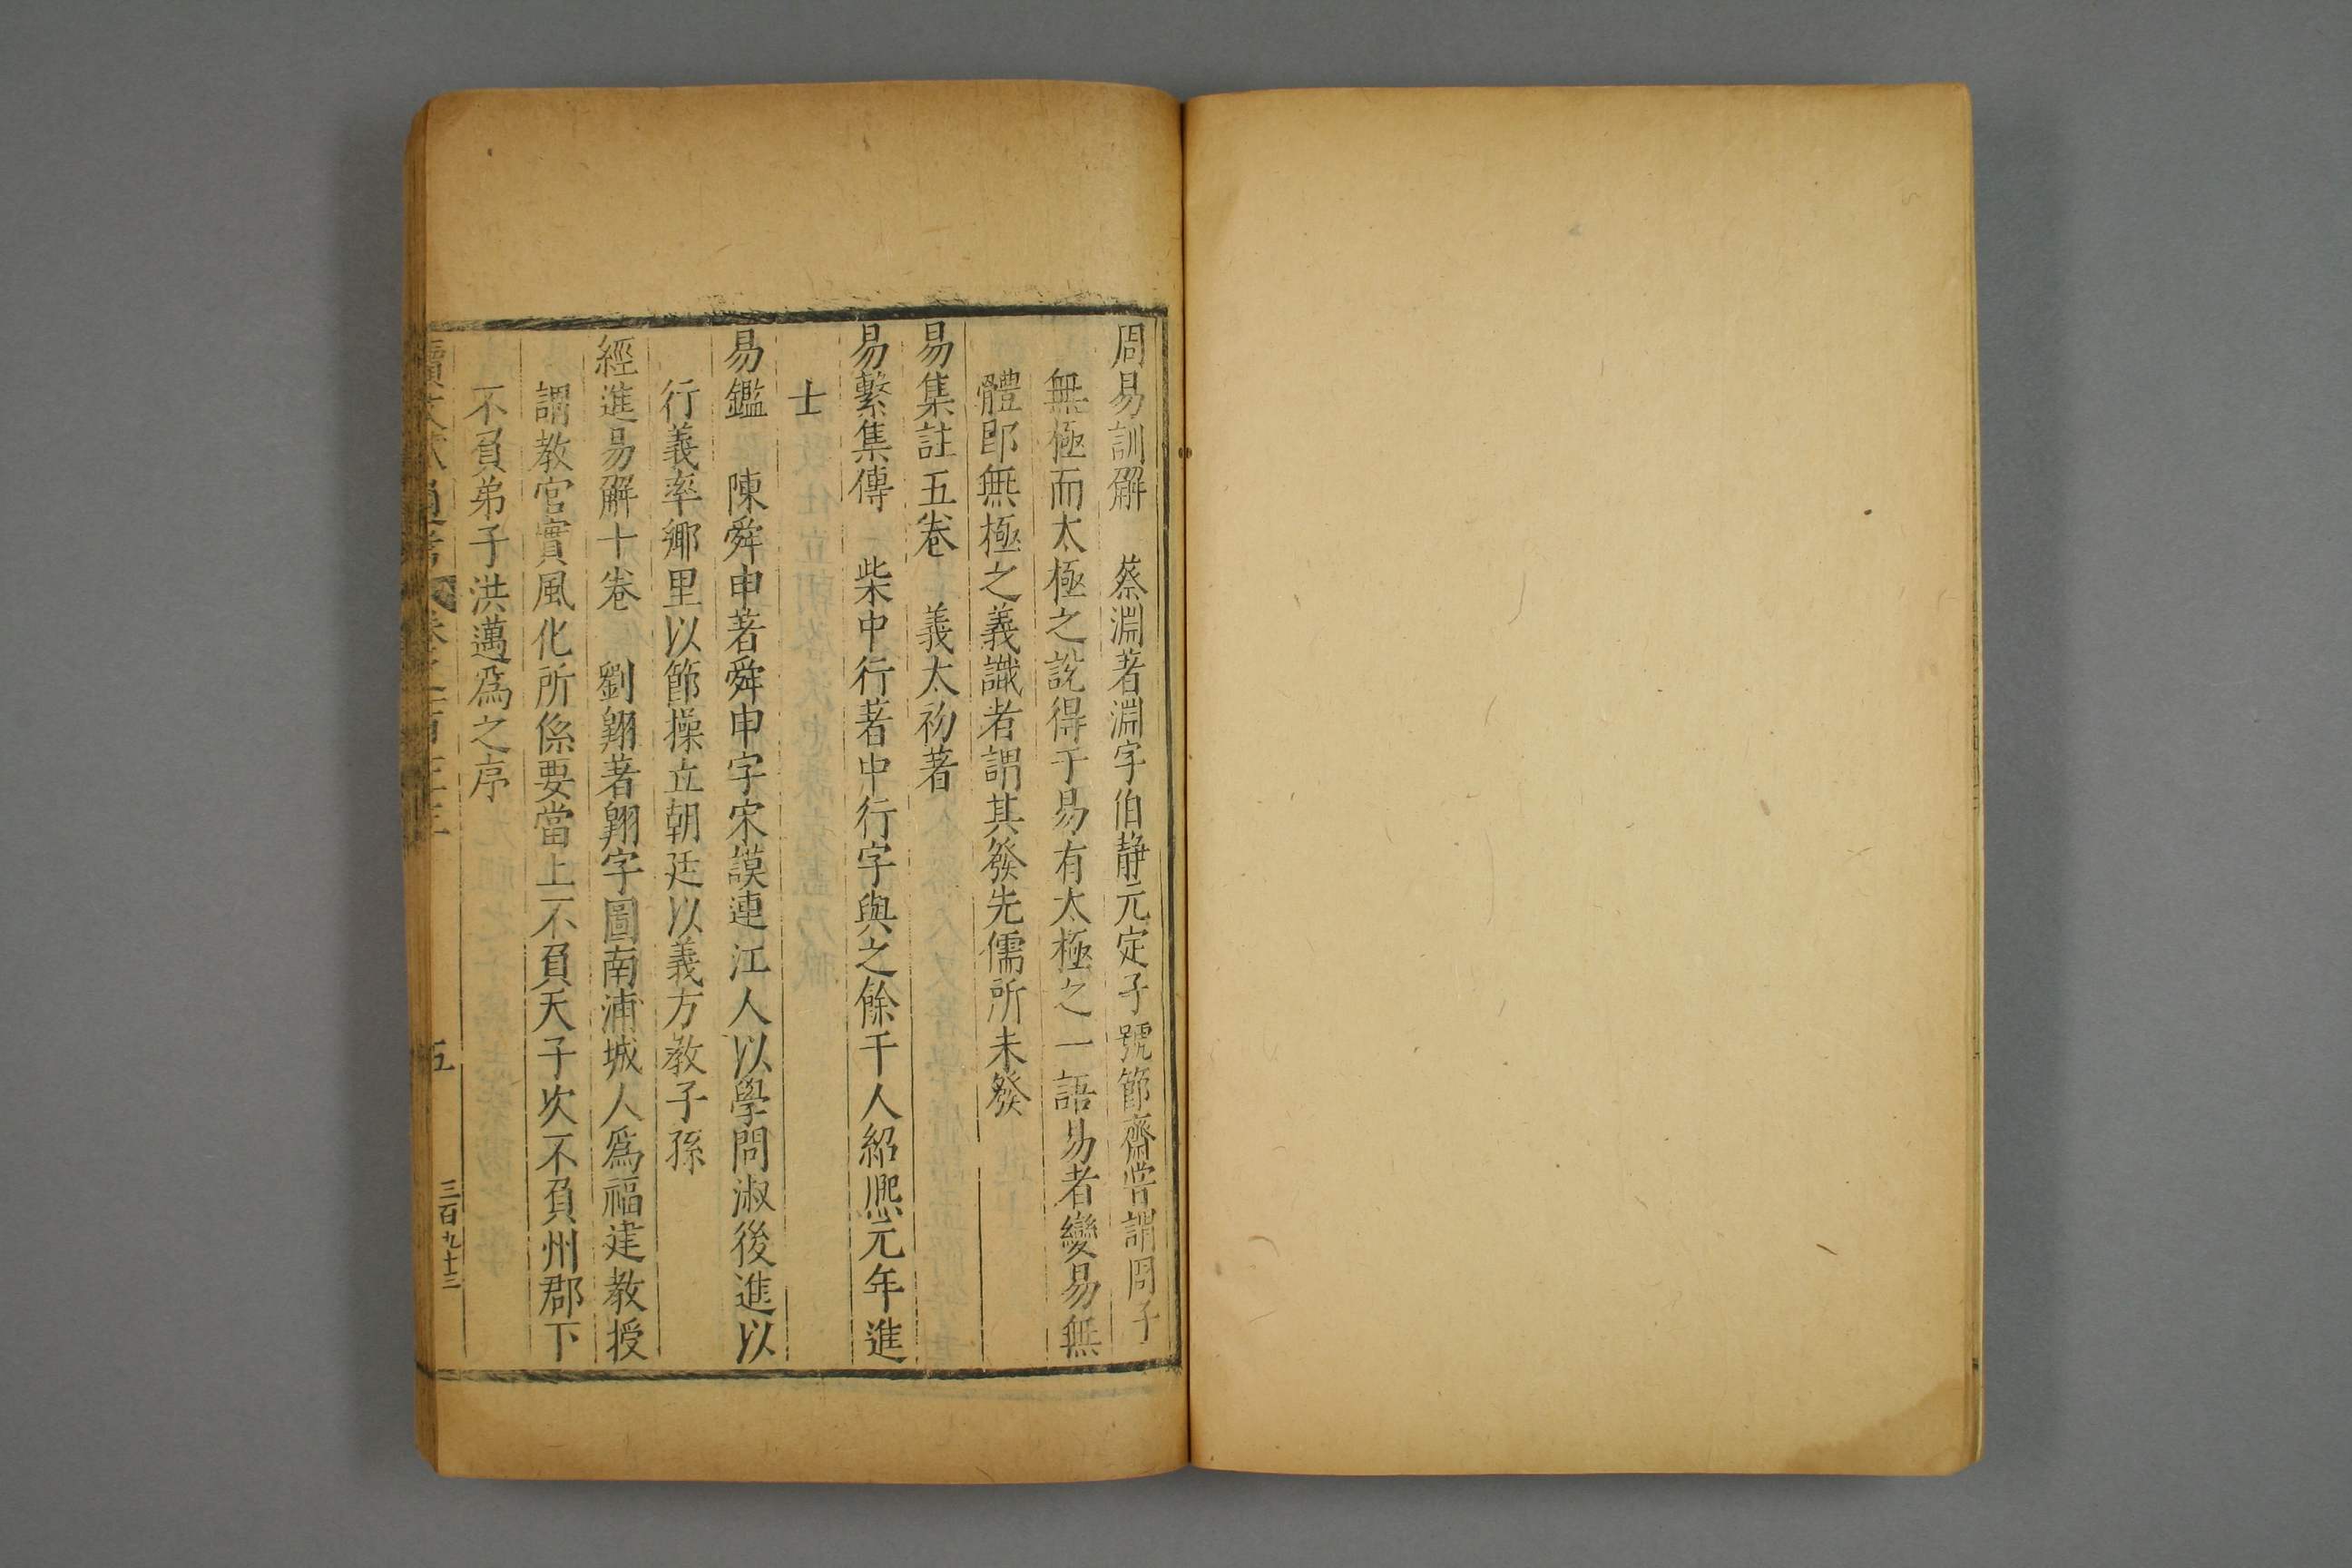 周易訓解　蔡淵著淵字伯静元定子號節齋嘗謂周子
無極而太極之說得于易有太極之一語易者變易無
體卽無極之義識者謂其發先儒所未發
易集註五卷　義太初著
易繫集傳　柴中行著中行字與之餘干人紹熈元年進
士
易鑑　陳舜申著舜申字宋謨連江人以學問淑後進以
行義率鄉里以節操立朝廷以義方教子孫
經進易解十卷　劉翔著翔字圖南浦城人爲福建教授
謂教官實風化所係要當上不負天子次不負州郡下
不負弟子洪邁爲之序
續文獻通考　卷之一百
五
三百九十三